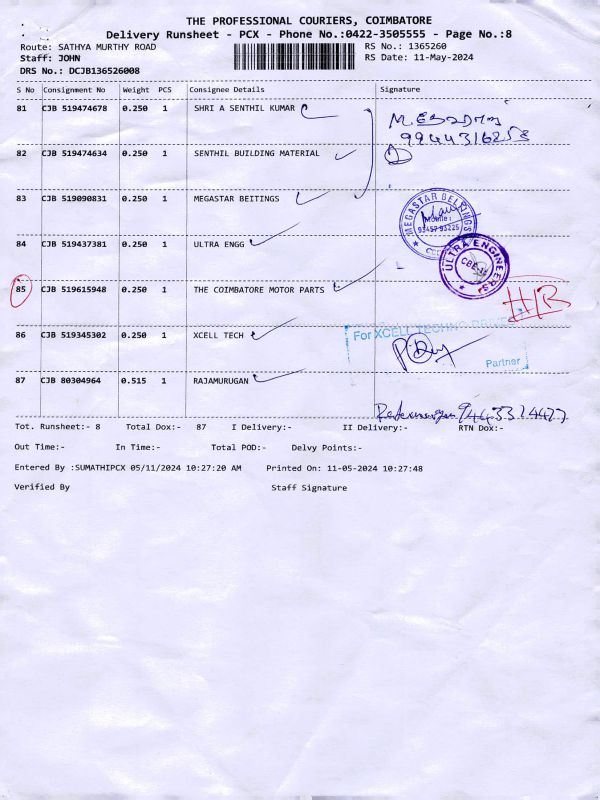 THE PROFESSIONAL COURIERS, COIMBATORE
Delivery Runsheet - PCX - Phone No.:0422-3505555 - Page No.:8
Route: SATHYA MURTHY ROAD RS No.: 1365260
Staff: JOHN RS Date: 11-May-2024
DRS No.: DCJB136526008
S No Consignment No Weight PCS Consignee Details Signature
81 CJB 519474678 0.250 1 SHRI A SENTHIL KUMAR
9944316258
82 CJB 519474634 0.250 1 SENTHIL BUILDING MATERIAL
83 CJB 519090831 0.250 1 MEGASTAR BEITINGS
MEGASTAR BELTINGS
Mobile:
93457 93225
84 CJB 519437381 0.250 1 ULTRA ENGG
ULTRA ENGINEERS
85 CJB 519615948 0.250 1 THE COIMBATORE MOTOR PARTS
86 CJB 519345302 0.250 1 XCELL TECH
For XCELL TECHNO
Partner
87 CJB 80304964 0.515 1 RAJAMURUGAN
Tot. Runsheet:- 8 Total Dox:- 87 I Delivery:- II Delivery:- RTN Dox:-
Out Time:- In Time:- Total POD:- Delvy Points:-
Entered By :SUMATHIPCX 05/11/2024 10:27:20 AM Printed On: 11-05-2024 10:27:48
Verified By Staff Signature